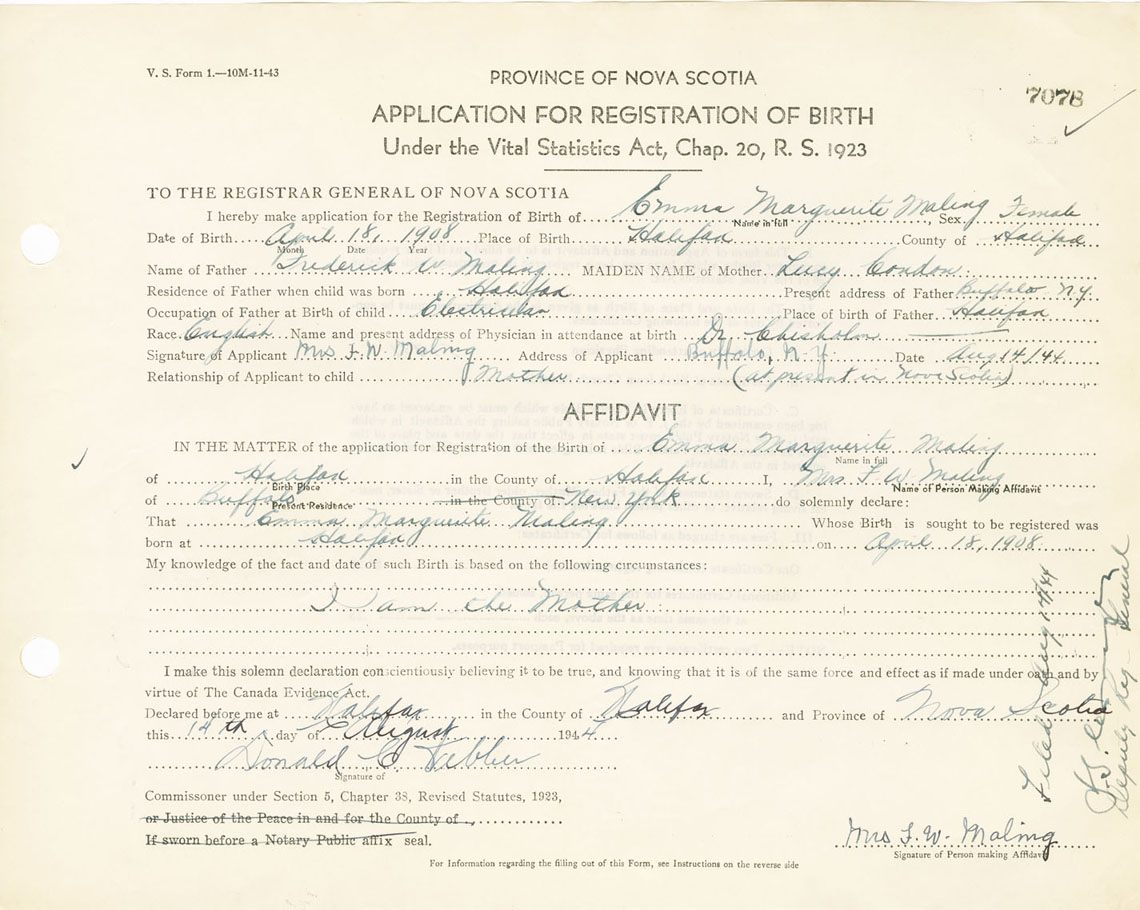 V. S. Form 1.—10M-11-43
PROVINCE OF NOVA SCOTIA
7078
APPLICATION FOR REGISTRATION OF BIRTH
Under the Vital Statistics Act, Chap. 20, R. S. 1923
TO THE REGISTRAR GENERAL OF NOVA SCOTIA
I hereby make application for the Registration of Birth of Emma Marguerite Maling, Sex Female
Name in full
Date of Birth April 18, 1908 Place of Birth Halifax County of Halifax
Month Date Year
Name of Father Frederick W Maling MAIDEN NAME of Mother Lucy Condon
Residence of Father when child was born Halifax Present address of Father Buffalo N.Y.
Occupation of Father at Birth of child Electrician Place of birth of Father Halifax
Race English Name and present address of Physician in attendance at birth Dr. Chisholm
Signature of Applicant Mrs F. W. Maling Address of Applicant Buffalo, N. Y. Date Aug 14/44
Relationship of Applicant to child Mother (at present in Nova Scotia)
AFFIDAVIT
IN THE MATTER of the application for Registration of the Birth of Emma Marguerite Maling
Name in full
of Halifax in the County of Halifax I, Mrs. F. W. Maling
Birth Place Name of Person Making Affidavit
of Buffalo in the County of New York do solemnly declare:
Present Residence
That Emma Marguerite Maling Whose Birth is sought to be registered was
born at Halifax on April 18, 1908
My knowledge of the fact and date of such Birth is based on the following circumstances:
I am the Mother
I make this solemn declaration conscientiously believing it to be true, and knowing that it is of the same force and effect as if made under oath and by
virtue of The Canada Evidence Act.
Declared before me at Halifax in the County of Halifax and Province of Nova Scotia
this 14th day of August 1944
Donald C Webber
Signature of
Commissoner under Section 5, Chapter 38, Revised Statutes, 1923,
or Justice of the Peace in and for the County of
If sworn before a Notary Public affix seal.
Mrs F. W. Maling
Signature of Person making Affidavit
For Information regarding the filling out of this Form, see Instructions on the reverse side
Filed Aug 14/44
Deputy Reg General